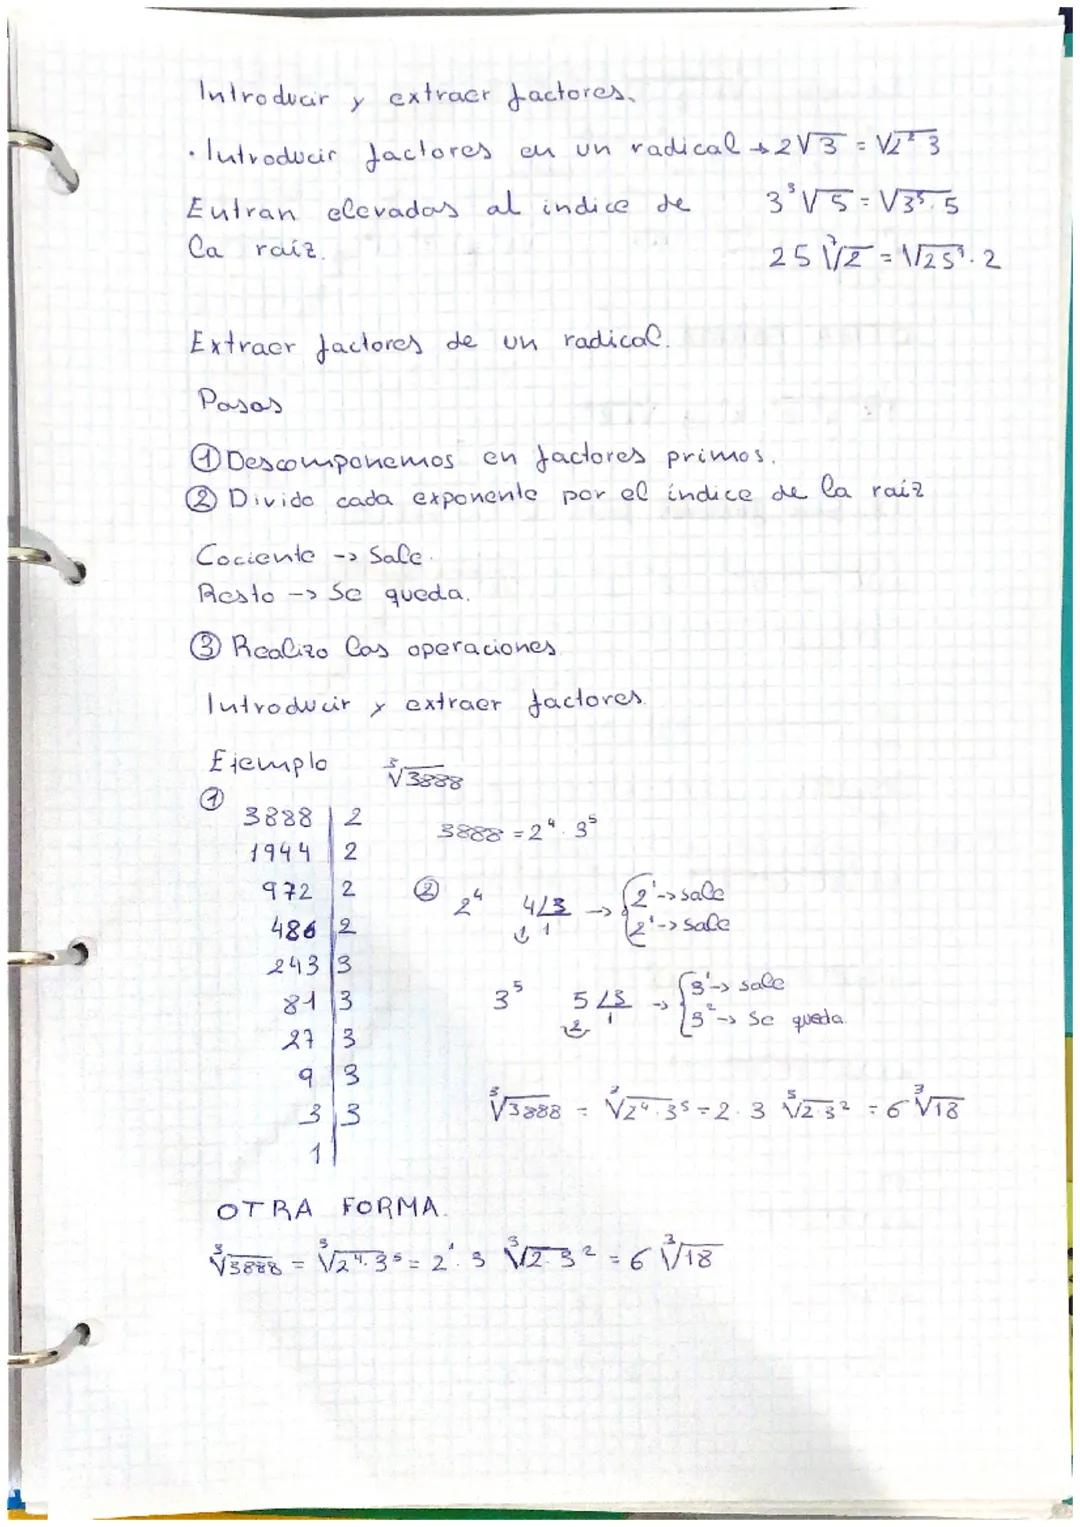 Introducir y extraer factores.
· Introducir factores en un radical → 2√3 = √2² 3
Entran elevadas al índice de 3 ³√5 = √3³. 5
la raíz. 25 ⁷√2 = √25⁷. 2
Extraer factores de un radical.
Pasos
① Descomponemos en factores primos.
② Divido cada exponente por el índice de la raíz
Cociente -> Sale.
Resto -> Se queda.
③ Realizo las operaciones
Introducir y extraer factores.
Ejemplo ³√3888
①
3888 | 2
3888 = 2⁴. 3⁵
1944 | 2
972 | 2
② 2⁴ 4/3 -> { 2¹ -> sale
486 | 2
1 1 2¹ -> sale
243 | 3
81 | 3
3⁵ 5/3 -> { 3¹ -> sale
2 1 3² -> Se queda.
27 | 3
9 | 3
3 | 3
³√3888 = ³√2⁴.3⁵ = 2. 3 ³√2.3² = 6 ³√18
1
OTRA FORMA.
³√3888 = ³√2⁴.3⁵ = 2¹. 3 ³√2.3² = 6 ³√18